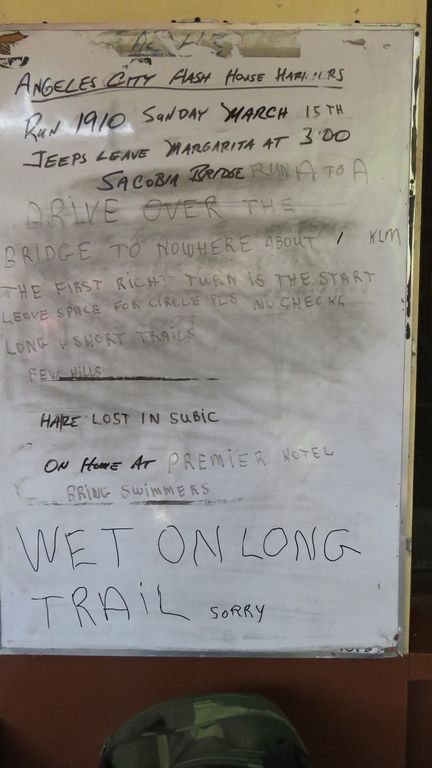 ANGELES CITY HASH HOUSE HARRIERS
RUN 1910 SUNDAY MARCH 15TH
JEEPS LEAVE MARGARITA AT 3:00
SACOBIA BRIDGE RUN A TO A
DRIVE OVER THE
BRIDGE TO NOWHERE ABOUT 1 KLM
THE FIRST RIGHT TURN IS THE START
LEAVE SPACE FOR CIRCLE PLS NO CHECKS
LONG + SHORT TRAILS
FEW HILLS
HARE LOST IN SUBIC
ON HOME AT PREMIER HOTEL
BRING SWIMMERS
WET ON LONG
TRAIL SORRY